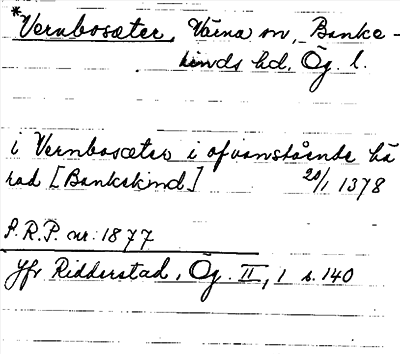 *Vernbosæter, Värna sn, Banke-
kinds hd, Ög. l.
i Vernbosæter i ofvanstående hä
rad [Bankekind] 20/1 1378
S.R.P. nr: 1877
Jfr Ridderstad, Ög. II, 1 s. 140